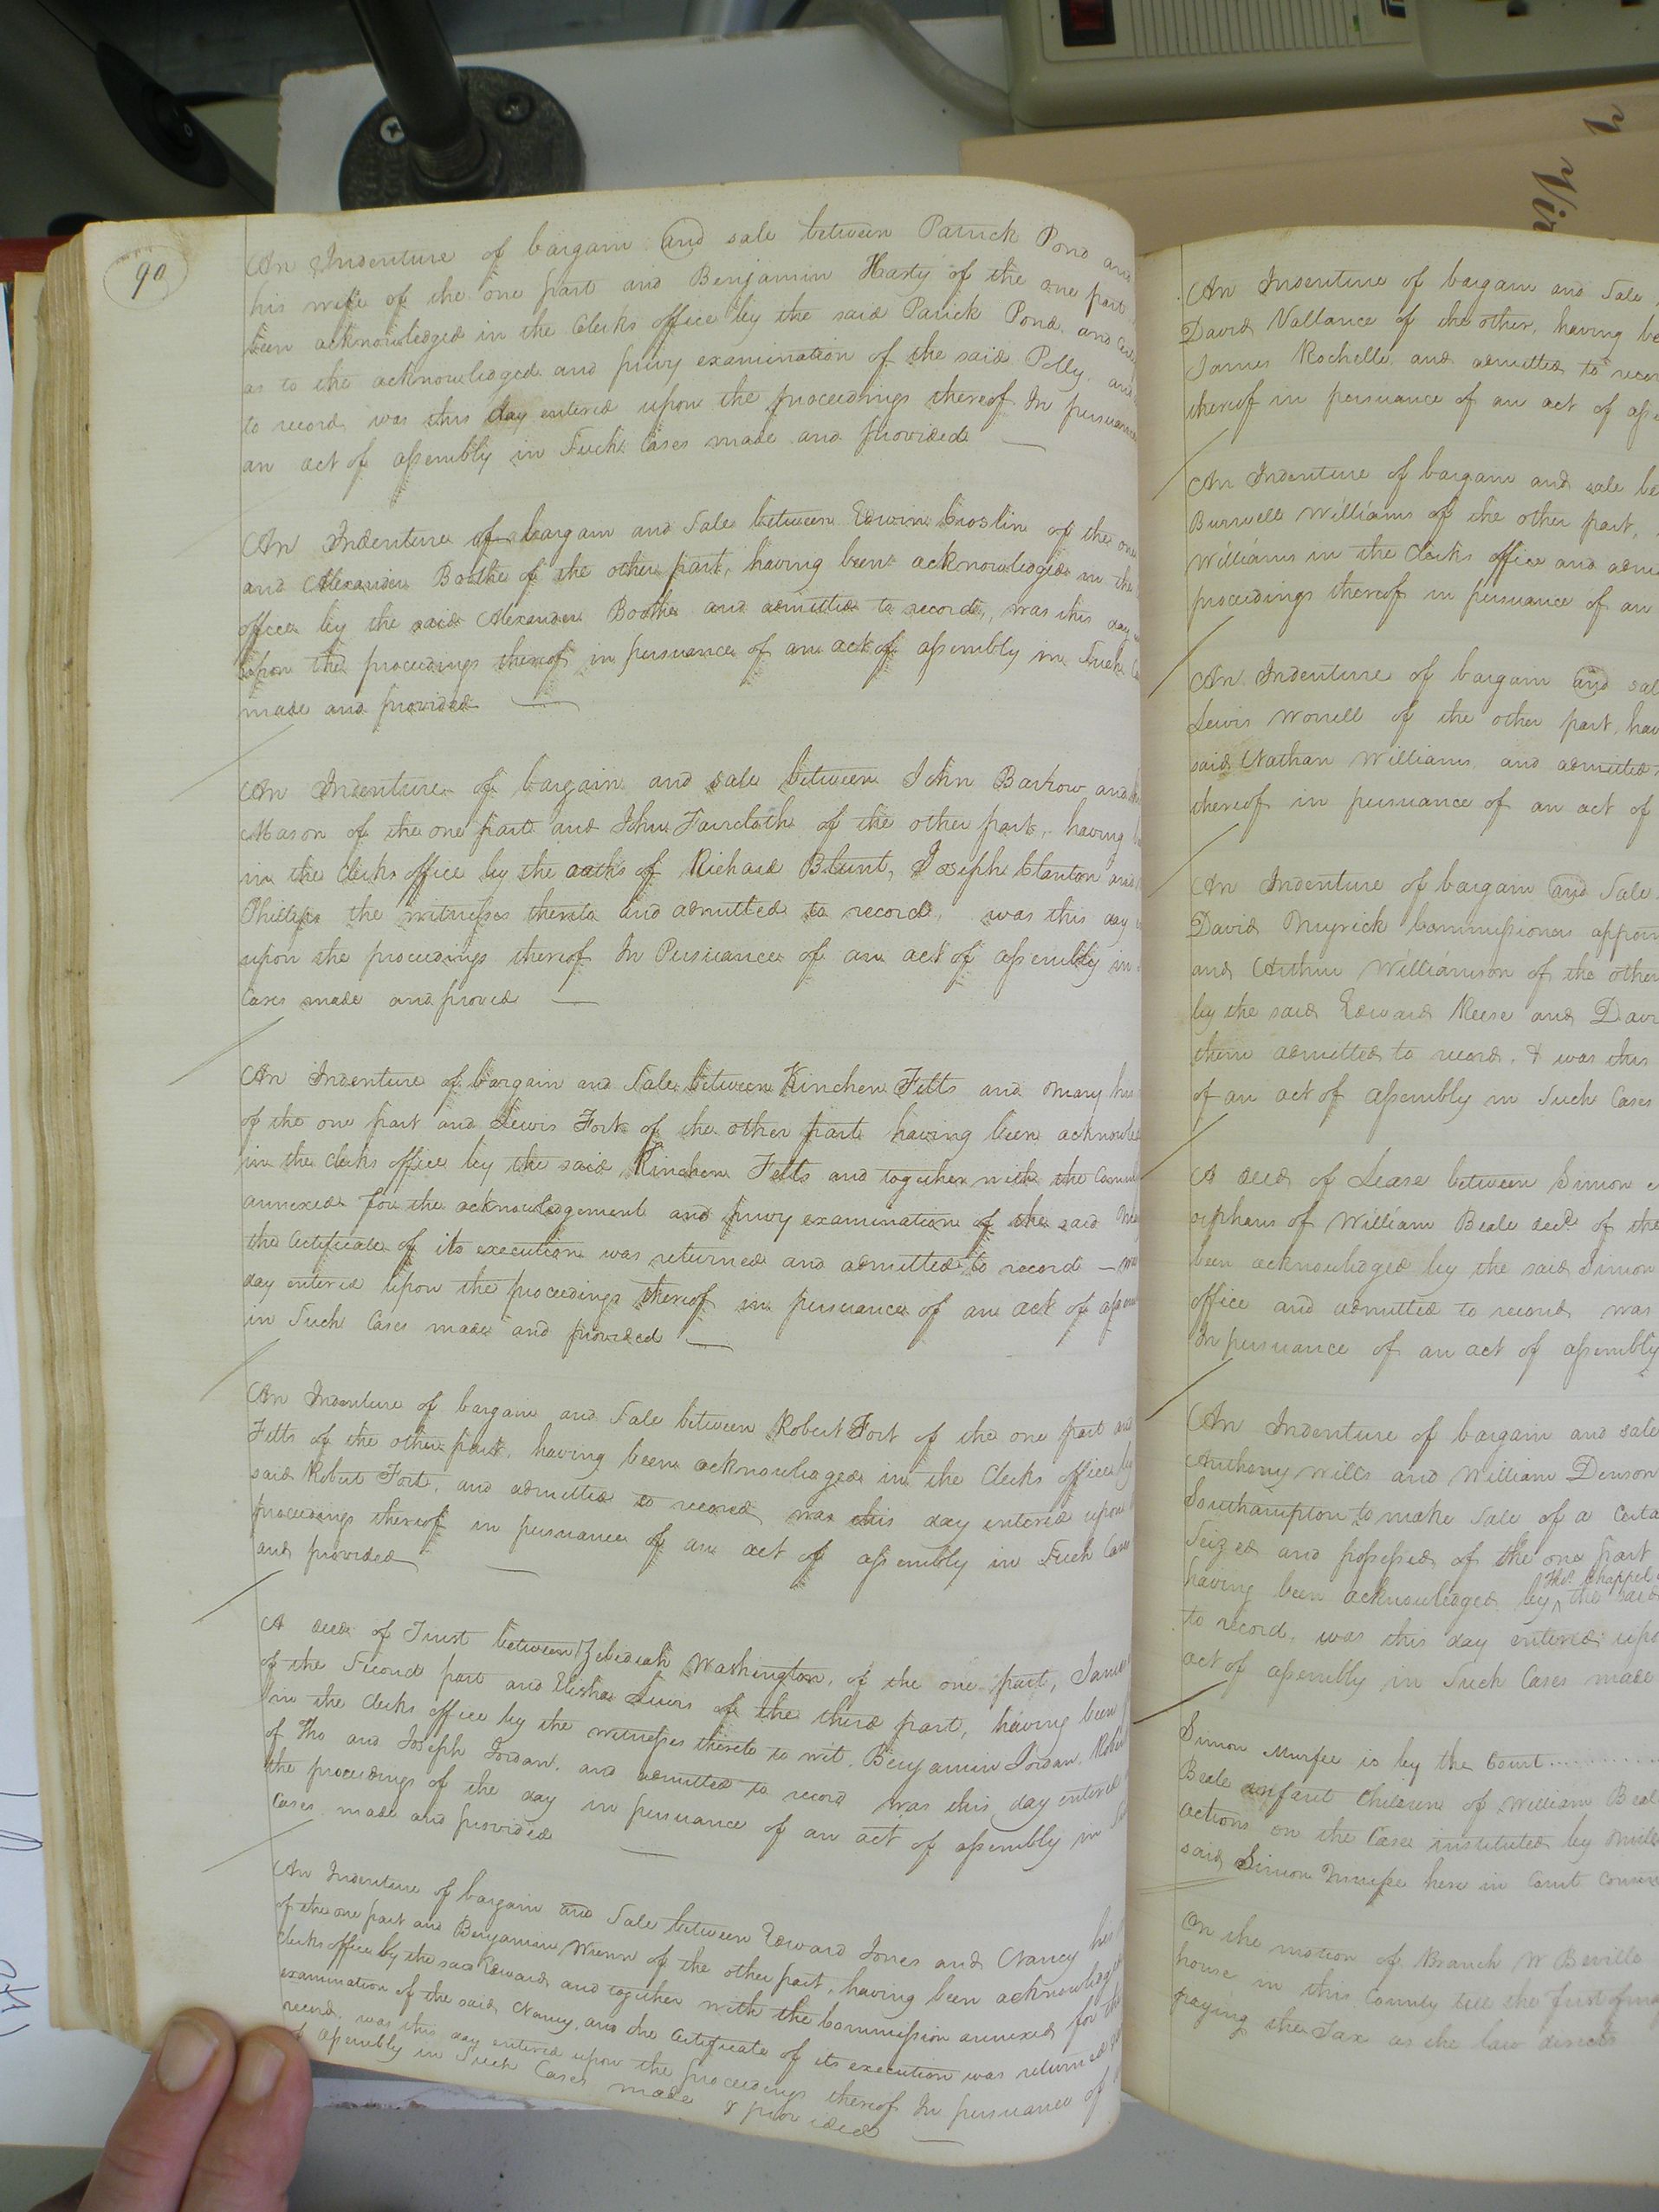 90
An Indenture of bargain and sale between Patrick Pond and
his wife of the one part and Benjamin Hasty of the one part
been acknowledged in the Clerks office by the said Patrick Pond, and
as to the acknowledged and privy examination of the said Polly, and
to record, was this day entered upon the proceedings thereof In persuance
an act of assembly in Such Cases made and provided
An Indenture of bargain and Sale between Edwin Croslin of the one
and Alexander Boothe of the other part, having been acknowledged in the
office by the said Alexander Boothe and admitted to record, was this day
upon the proceedings thereof in persuance of an act of assembly in Such
made and provided
An Indenture of bargain and sale between John Barrow and
Mason of the one part and John Faircloth of the other part, having
in the Clerks office by the oaths of Richard Blunt, Joseph Clanton and
Phillips the witnesses thereto and admitted to record, was this day
upon the proceedings thereof In Persuance of an act of assembly in
Cases made and proved
An Indenture of bargain and Sale between Kinchen Felts and Mary his
of the one part and Lewis Fort of the other part having been acknowled
in the Clerks office by the said Kinchen Felts and together with the Commi
annexed for the acknowledgement and privy examination of the said
the Certificate of its execution was returned and admitted to record - was
day entered upon the proceedings thereof in persuance of an act of assem
in Such Cases made and provided
An Indenture of bargain and Sale between Robert Fort of the one part and
Felts of the other part, having been acknowledged in the Clerks office by
said Robert Fort, and admitted to record was this day entered upon
proceedings thereof in persuance of an act of assembly in Such Cases
and provided
A deed of Trust between Zebedeah Washington, of the one part, James
of the Second part and Elisha Lewis of the third part, having been
in the Clerks office by the witnesses thereto to wit, Benjamin Jordan, Robert
of Tho and Joseph Jordan, and admitted to record was this day entered
the proceedings of the day in persuance of an act of assembly in
Cases made and provided
An Indenture of bargain and Sale between Edward Jones and Nancy his
of the one part and Benjamin Wrenn of the other part, having been acknowledged
Clerks office by the said Edward, and together with the Commission annexed for the
examination of the said Nancy, and the Certificate of its execution was returned
record, was this day entered upon the proceedings thereof In persuance of
assembly in Such Cases made & provided
An Indenture of bargain and Sale
David Vallance of the other, having be
James Rochelle, and admitted to recor
thereof in persuance of an act of asse
An Indenture of bargain and sale be
Burwell Williams of the other part,
Williams in the Clerks office and adm
proceedings thereof in persuance of an
An Indenture of bargain and sal
Lewis Worrell of the other part, hav
said Nathan Williams, and admitted
thereof in persuance of an act of
An Indenture of bargain and Sale
David Myrick Commissioners appoin
and Arthur Williamson of the other
by the said Edward Reese and Davi
them admitted to record, & was this
of an act of assembly in Such Cases
A deed of Lease between Simon
orphans of William Beale decd. of the
been acknowledged by the said Simon
office and admitted to record, was
In persuance of an act of assembly
An Indenture of bargain and sale
Anthony Wills and William Denson
Southampton to make Sale of a Certa
Seized and possessed of the one part
Thos. Chappel
having been acknowledged by the said
to record, was this day entered upo
act of assembly in Such Cases made
Simon Murfee is by the Court
Beale infant Children of William Beal
actions on the Case instituted by
said Simon Murfee here in Court Consen
On the motion of Branch W Beville
house in this County till the first of may
paying the Tax as the law directs